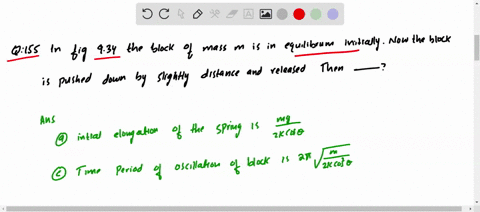 Q:155 In fig 9.34 the block of mass m is in equilibrium initially. Now the block
is pushed down by slightly distance and released Then ___?
Ans
(a) intial elongation of the spring is mg/2K Cosθ
(c) Time period of oscillation of block is 2π√(m/2K Cos²θ)